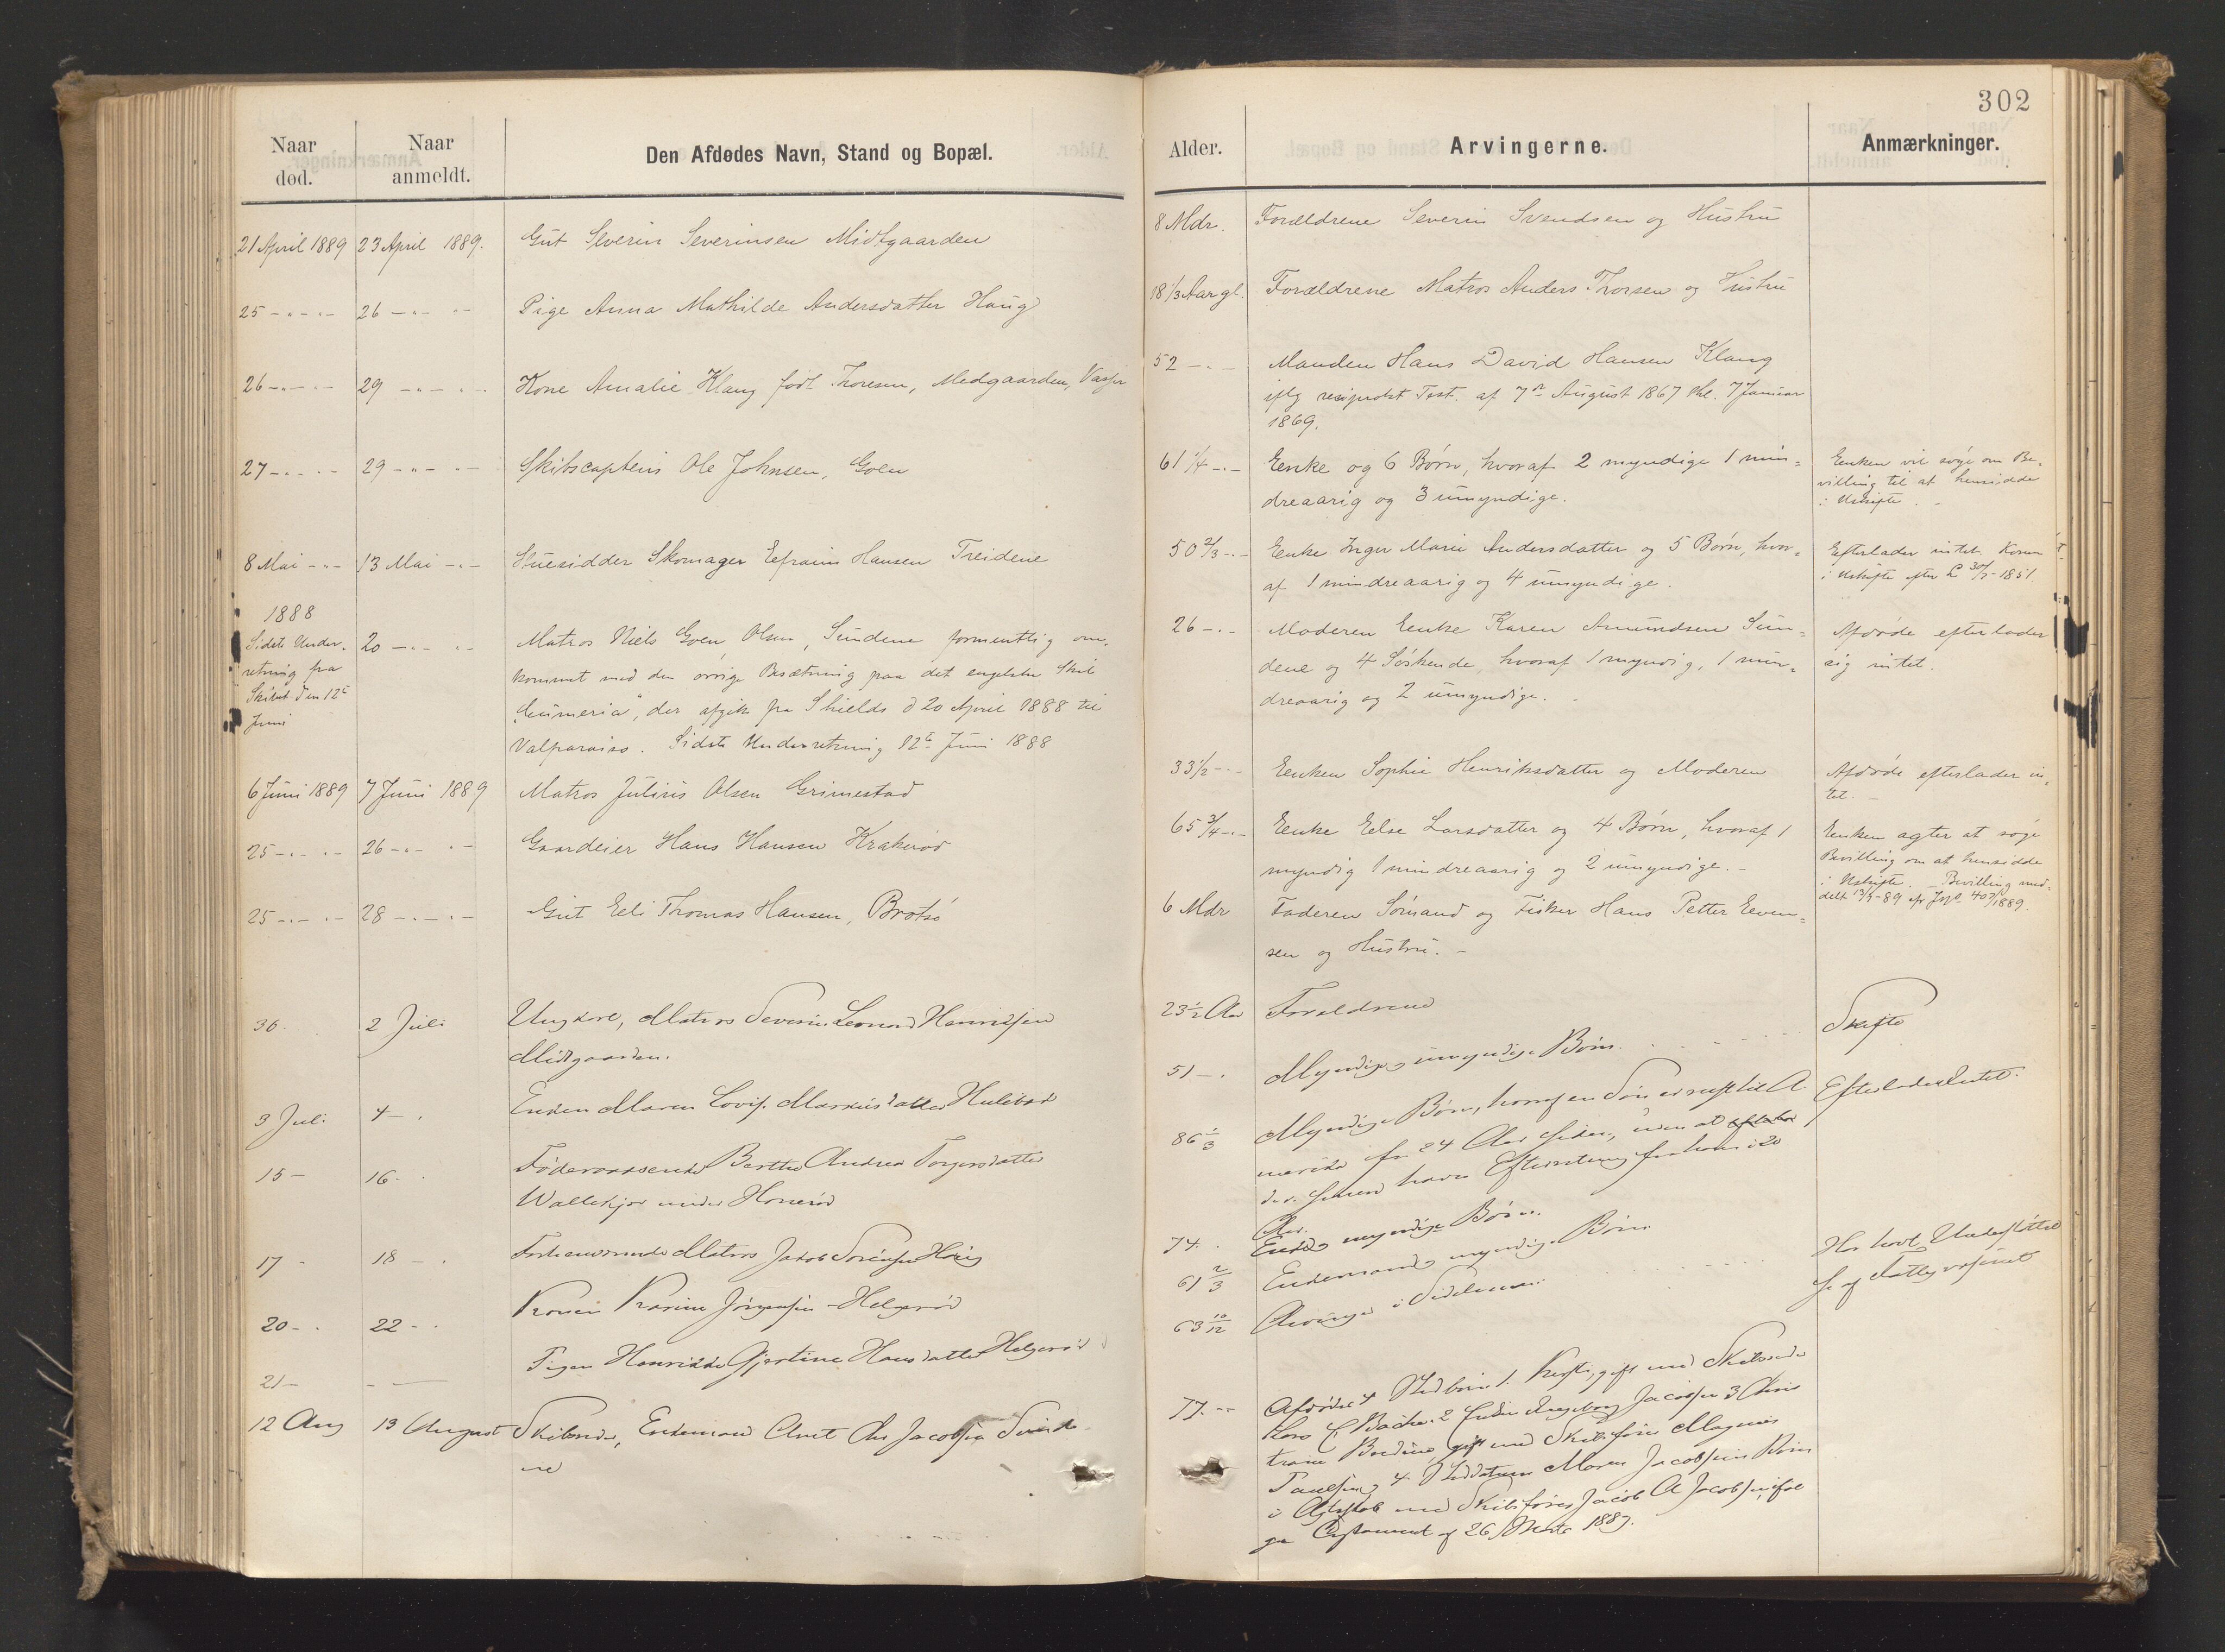 302
Naar
død.
Naar
anmeldt.
Den Afdødes Navn, Stand og Bopæl.
Alder.
Arvingerne.
Anmærkninger.
21 April 1889 23 April 1889. Gut Severin Severinsen Midtgaarden
8 Mdr. Forældrene Severin Svendsen og Hustru
25 - " - " - 26 - " - " - Pige Anna Mathilde Andersdatter Haug
18 1/3 Aar gl. Forældrene Matros Anders Thorsen og Hustru
26 - " - " - 29 - " - " - Kone Amalie Klang født Thoresen, Medgaarden,
52 - " - Manden Hans David Hansen Klang
Test. af 7de August 1867 7 Januar
1869.
27 - " - " - 29 - " - " - Skibscaptein Ole Johnsen, Goen
61 1/4 - " - Enke og 6 Børn, hvoraf 2 myndige 1 min=
dreaarig og 3 umyndige.
Enken vil søge om Be=
villing til at hensidde
i Uskifte.
8 Mai - " - 13 Mai - " - Huusidder Skomager Efraim Hansen Treidene
50 2/3 - " - Enke Inger Marie Andersdatter og 5 Børn, hvor=
af 1 mindreaarig og 4 umyndige.
Efterlader intet. Konen
i Uskifte efter L 30/7-1851.
1888
Sidste Under=
retning fra
Skibet den 12te
Juni
20 - " - " - Matros Niels Goen Olsen, Sundene formentlig om=
kommet med den øvrige Besætning paa det engelske Skib
der afgik fra Shields d 20 April 1888 til
Valparaiso. Sidste Underretning 12te Juni 1888
26 - " - Moderen Enke Karen Amundsen Sun=
dene og 4 Søskende, hvoraf 1 myndig, 1 min=
dreaarig og 2 umyndige.
Afdøde efterlader
sig intet.
6 Juni 1889 7 Juni 1889 Matros Julius Olsen Grimestad
33 1/2 - " - Enken Sophie Henriksdatter og Moderen
Afdøde efterlader in=
tet.
25 - " - " - 26 - " - " - Gaardeier Hans Hansen Krakerød
65 3/4 - " - Enke Else Larsdatter og 4 Børn, hvoraf 1
myndig 1 mindreaarig og 2 umyndige.
Enken agter at søge
Bevilling om at hensidde
i Uskifte. Bevilling med=
delt
25 - " - " - 28 - " - " - Gut Eeli Thomas Hansen, Brøtsø
6 Mdr Faderen Sømand og Fisker Hans Petter Even=
sen og Hustru.
30. 2 Juli Ungkarl, Matros Severin Leonard Henriksen
Midtgaarden.
23 1/2 Aar Forældrene
3 Juli 4 - " Enken Maren Lovise Markusdatter Hulebak
51 - " Myndige og umyndige Børn.
Skifte
15 - 16. Føderaadsenke Berthe Andrea Torgersdatter
Wallekjær under Honerød
86 1/3 Myndige Børn, hvoraf en Søn er reist til A
merika for 24 Aar siden, uden at
der senere haves Efterretning fra ham i 20
Aar.
Efterlader Intet.
17 - 18 - " Matros Jakob Sørensen Haug
74. Enke og myndige Børn.
20 - " 22 - " Konen Karine Jørgensen Helgerød
61 2/3 Enkemand og myndige Børn
21 - Pigen Henrikke Gjertine Hansdatter Helgerød
63 10/12 Arvinger i Sidelinien.
Har havt Understøttel
se af Fattigvæsenet
12 Aug 13 August Skibsreder, Enkemand Anet Chr Jacobsen Sunde
ne
77 - " Afdødes 4 Stedbørn 1. gift med Skibsreder
Lars C. Bache. 2 Enken Ingeborg Jacobsen 3
gift med Skibsfører Magnus
Paulsen, 4. Maren Jacobsens Børn
i Ægteskab med Skibsfører Jacob A Jacobsen, iføl
ge Testament af 26 Marts 1887.